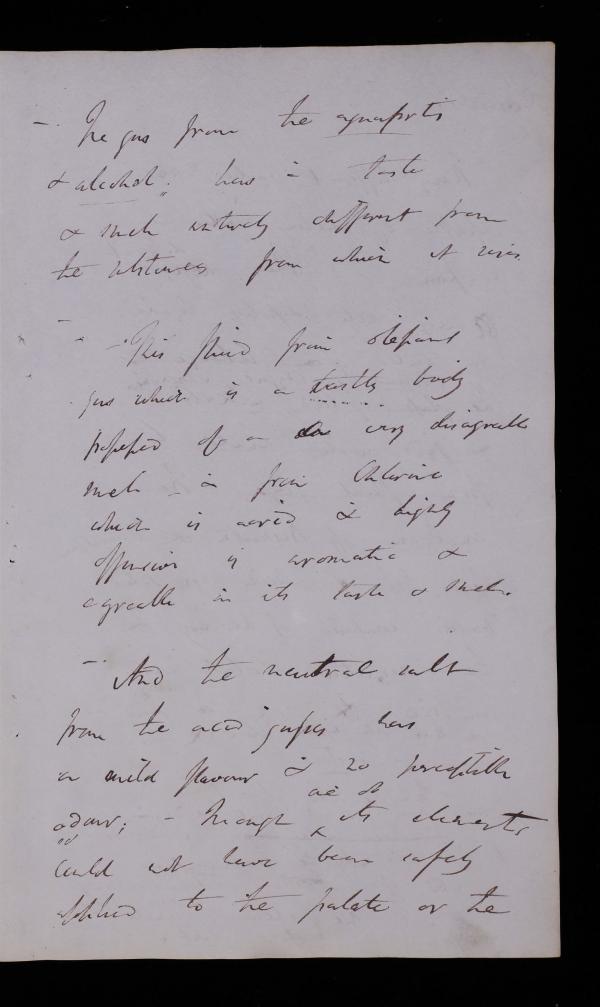 – The gas from the aquafortis
& alcohol; has a taste
& smell entirely different from
the substances from which it rises.
– This fluid from olefiant
gas which is a tasteless body
possessed of a very disagreeable
smell – & from Chlorine
which is acrid & highly
offensive is aromatic &
agreeable in its taste & smell.
– And the neutral salt
from the acid gases has
a mild flavour & no perceptible
odour; – though one of its elements
could not have been safely
applied to the palate or the